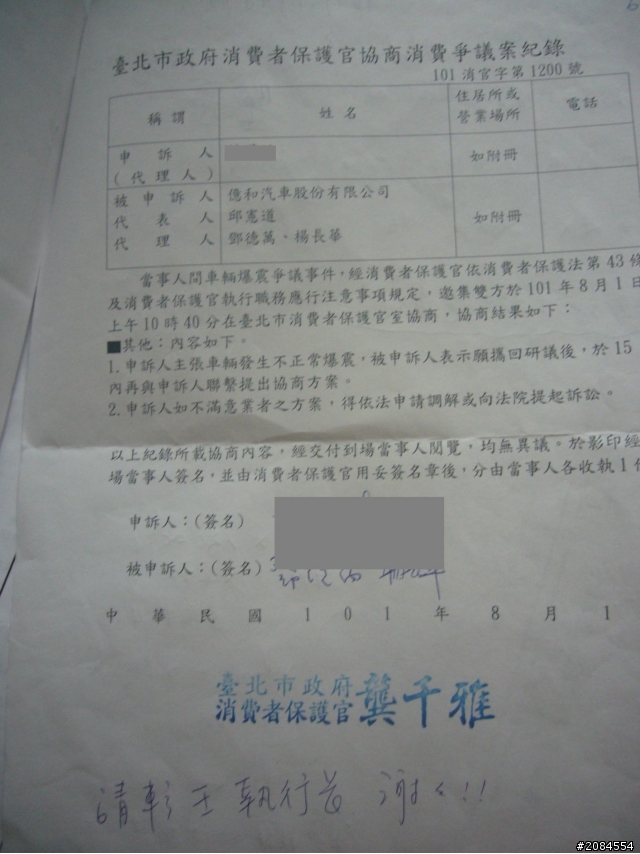 臺北市政府消費者保護官協商消費爭議案紀錄
101 消官字第 1200 號
稱謂 姓名 住居所或營業場所 電話
申訴人
(代理人) 如附冊
被申訴人 億和汽車股份有限公司
代表人 邱憲道 如附冊
代理人 鄧德萬、楊長華
當事人間車輛爆震爭議事件,經消費者保護官依消費者保護法第 43 條
及消費者保護官執行職務應行注意事項規定,邀集雙方於 101 年 8 月 1 日
上午 10 時 40 分在臺北市消費者保護官室協商,協商結果如下:
■其他:內容如下。
1.申訴人主張車輛發生不正常爆震,被申訴人表示願攜回研議後,於 15
內再與申訴人聯繫提出協商方案。
2.申訴人如不滿意業者之方案,得依法申請調解或向法院提起訴訟。
以上紀錄所載協商內容,經交付到場當事人閱覽,均無異議。於影印經
場當事人簽名,並由消費者保護官用妥簽名章後,分由當事人各收執 1 份
申訴人:(簽名)
被申訴人:(簽名)
中華民國 101 年 8 月 1
臺北市政府
消費者保護官 龔千雅
請彰王執行首 謝々!!
#2084554